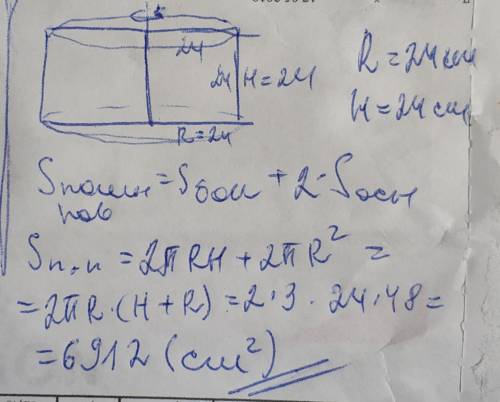 24
24 H=24
R=24
R=24 cm
H=24 cm
Sполн = Sбок + 2·Sосн
пов
Sп.п = 2πRH + 2πR² =
= 2πR·(H+R) = 2·3·24·48 =
= 6912 (cm²)